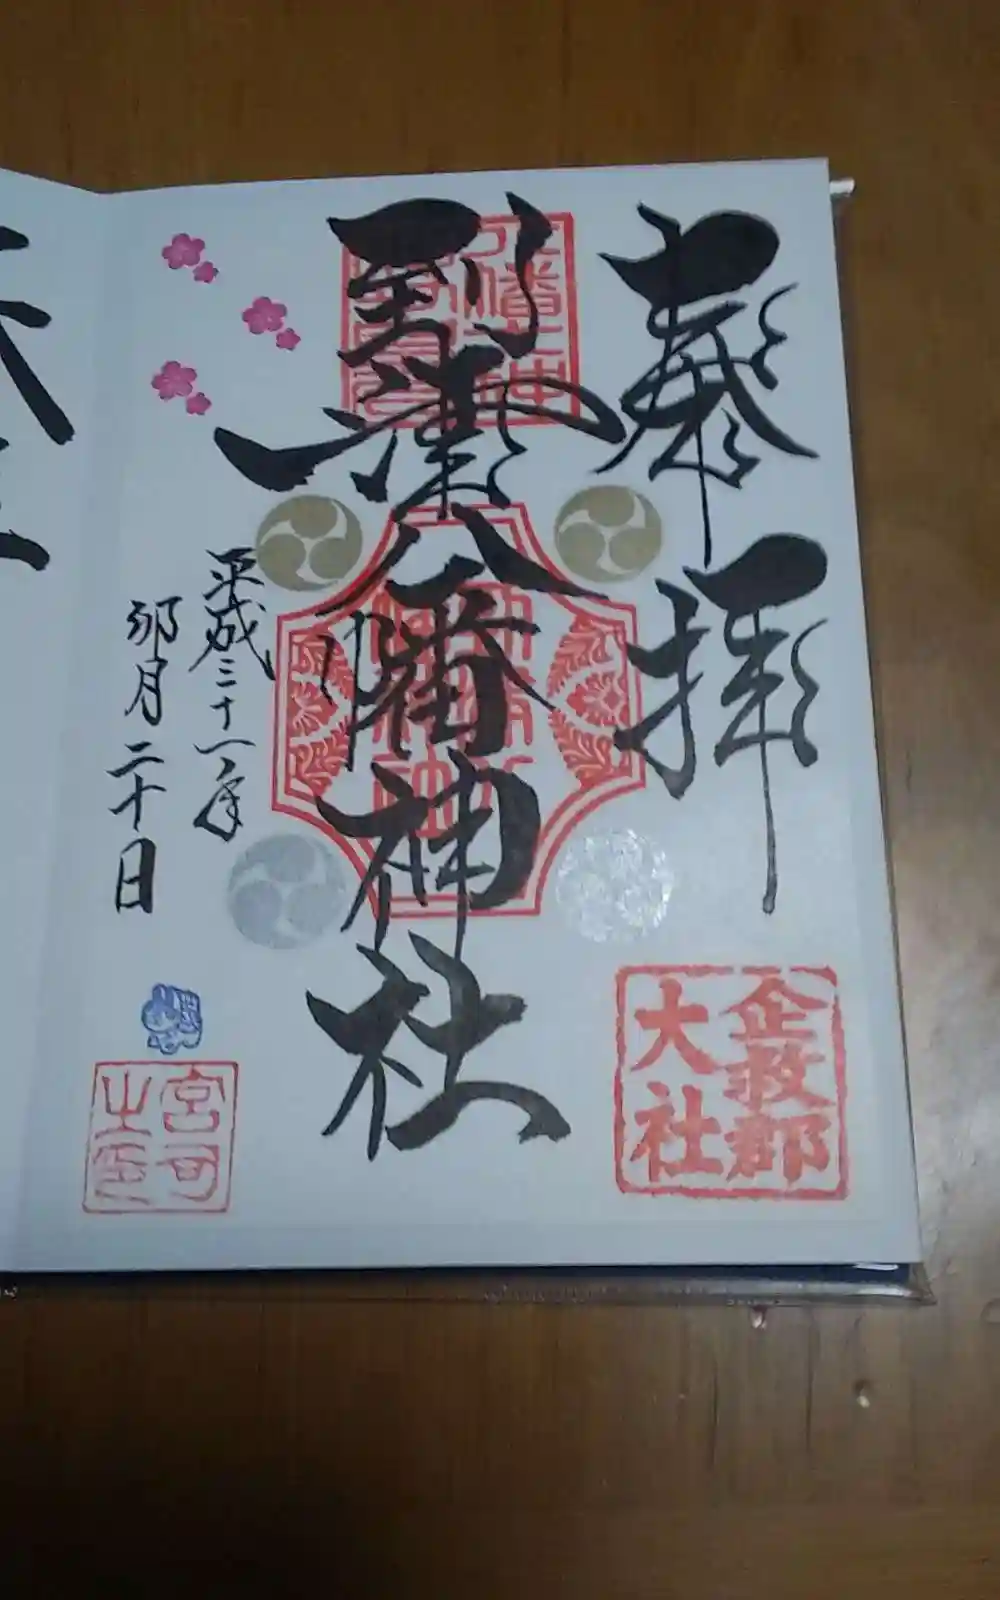 奉拝
到津八幡神社
平成三十一年
卯月二十日
企救郡
大社
宮司
之印